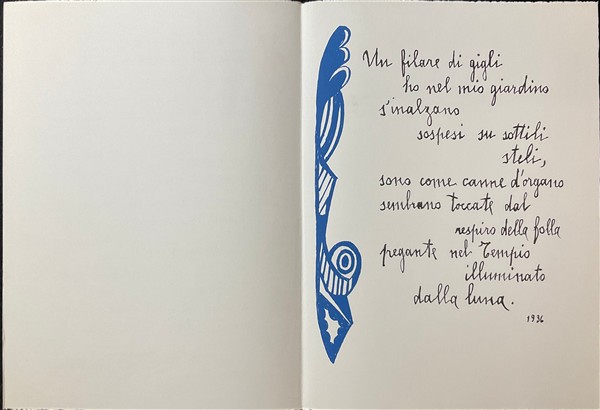 Un filare di gigli
ho nel mio giardino
s'inalzano
sospesi su sottili
steli,
sono come canne d'organo
sembrano toccate dal
respiro della folla
pregante nel Tempio
illuminato
dalla luna.
1936